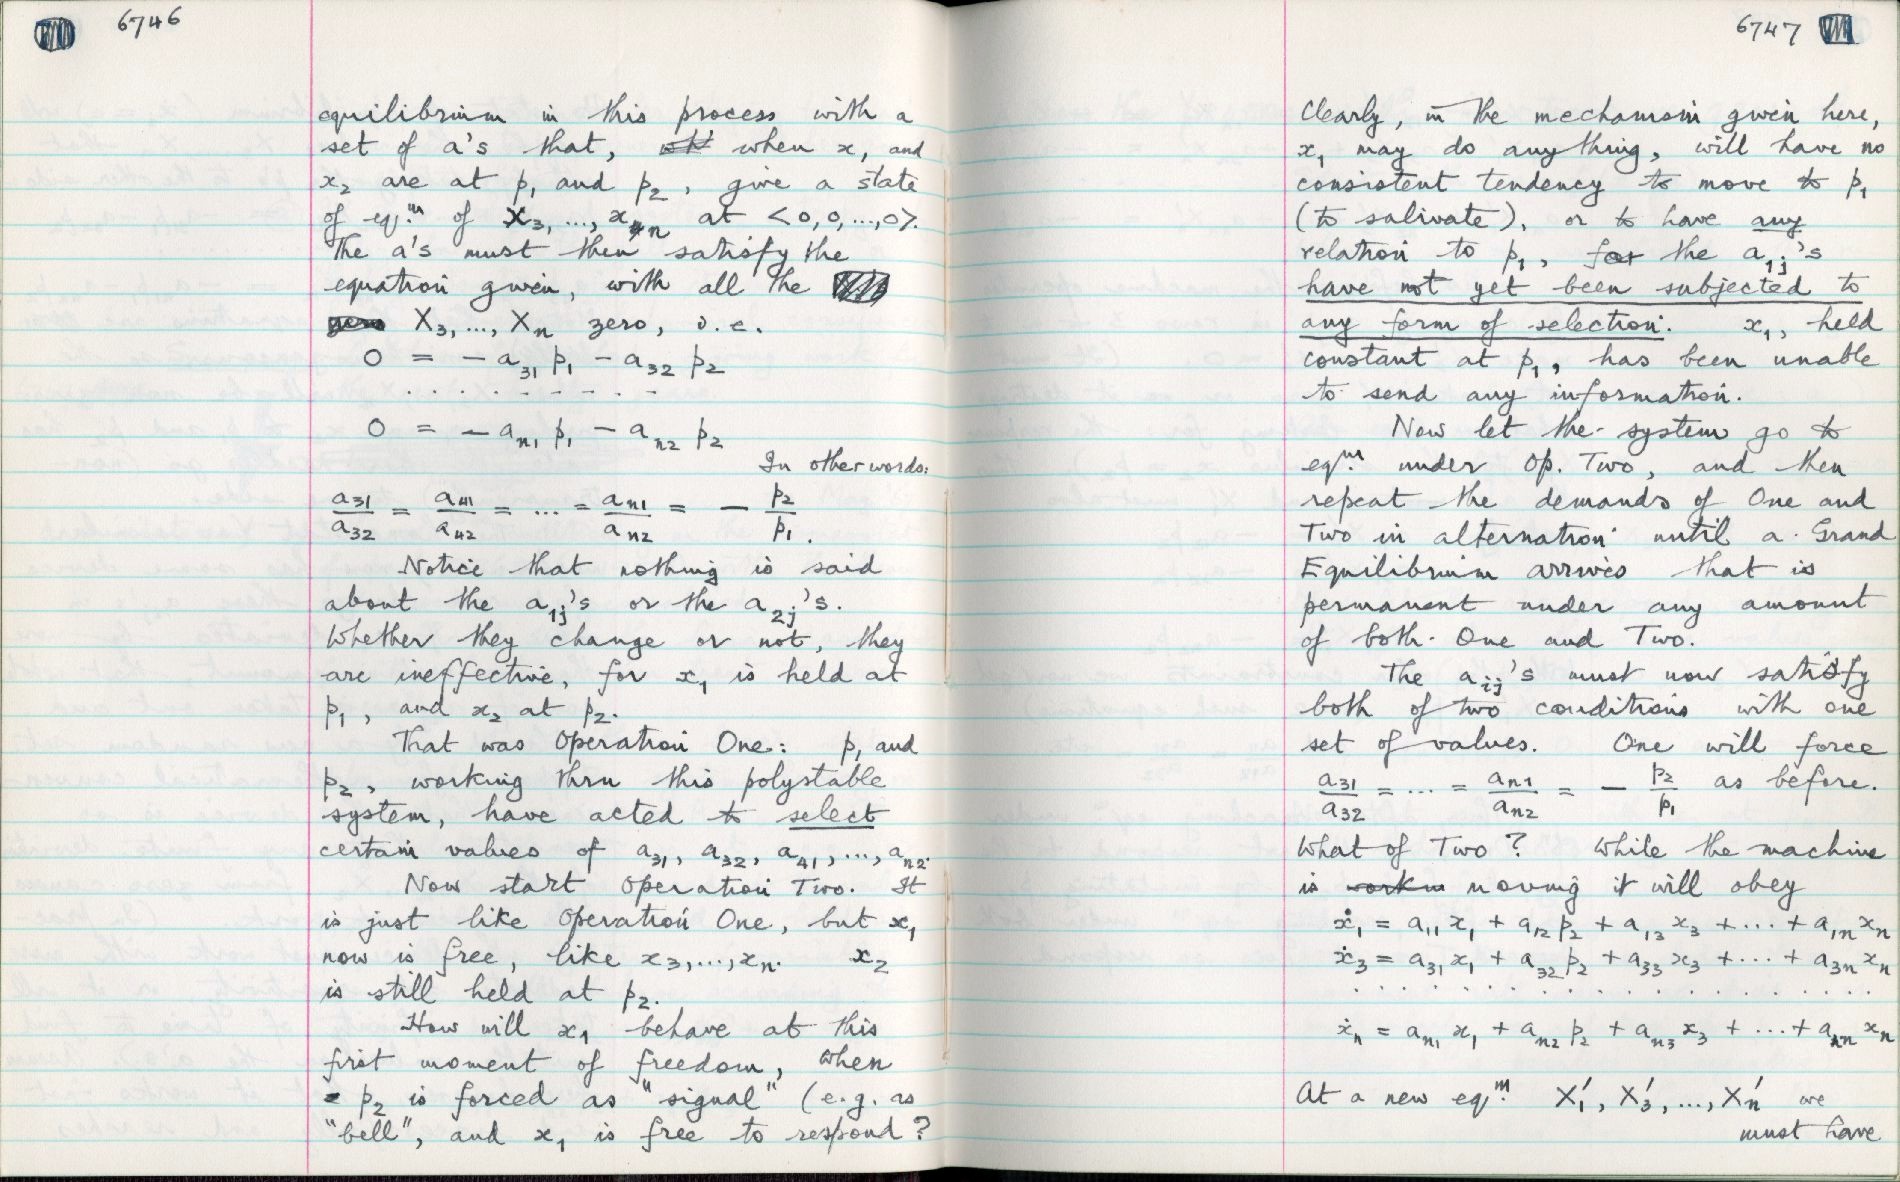 6746
equilibrium in this process with a
set of a's that, when x, and
x₂ are at p₁ and p₂, give a state
of eqᵐ. of X₃, ..., xₙ at <0,0,...,0>.
The a's must then satisfy the
equation given, with all the
zero X₃, ..., Xₙ zero, i.e.
0 = − a₃₁ p₁ − a₃₂ p₂
. . . . . . . . .
0 = − aₙ₁ p₁ − aₙ₂ p₂
In other words:
a₃₁/a₃₂ = a₄₁/a₄₂ = ... = aₙ₁/aₙ₂ = − p₂/p₁.
Notice that nothing is said
about the a₁ⱼ's or the a₂ⱼ's.
Whether they change or not, they
are ineffective, for x₁ is held at
p₁, and x₂ at p₂.
That was Operation One: p₁ and
p₂, working thru this polystable
system, have acted to select
certain values of a₃₁, a₃₂, a₄₁, ..., aₙ₂.
Now start Operation Two. It
is just like Operation One, but x₁
now is free, like x₃, ..., xₙ. x₂
is still held at p₂.
How will x₁ behave at this
first moment of freedom, when
p₂ is forced as "signal" (e.g. as
"bell", and x₁ is free to respond?
6747
Clearly, in the mechanism given here,
x₁ may do anything, will have no
consistent tendency to move to p₁
(to salivate), or to have any
relation to p₁, for the a₁ⱼ's
have not yet been subjected to
any form of selection. x₁, held
constant at p₁, has been unable
to send any information.
Now let the system go to
eqᵐ. under Op. Two, and then
repeat the demands of One and
Two in alternation until a Grand
Equilibrium arrives that is
permanent under any amount
of both One and Two.
The aᵢⱼ's must now satisfy
both of two conditions with one
set of values. One will force
a₃₁/a₃₂ = ... = aₙ₁/aₙ₂ = − p₂/p₁ as before.
What of Two? While the machine
is workin moving it will obey
ẋ₁ = a₁₁ x₁ + a₁₂ p₂ + a₁₃ x₃ + ... + a₁ₙ xₙ
ẋ₃ = a₃₁ x₁ + a₃₂ p₂ + a₃₃ x₃ + ... + a₃ₙ xₙ
. . . . . . . . . . . . . . .
ẋₙ = aₙ₁ x₁ + aₙ₂ p₂ + aₙ₃ x₃ + ... + aₙₙ xₙ
At a new eqᵐ. X₁′, X₃′, ..., Xₙ′ we
must have